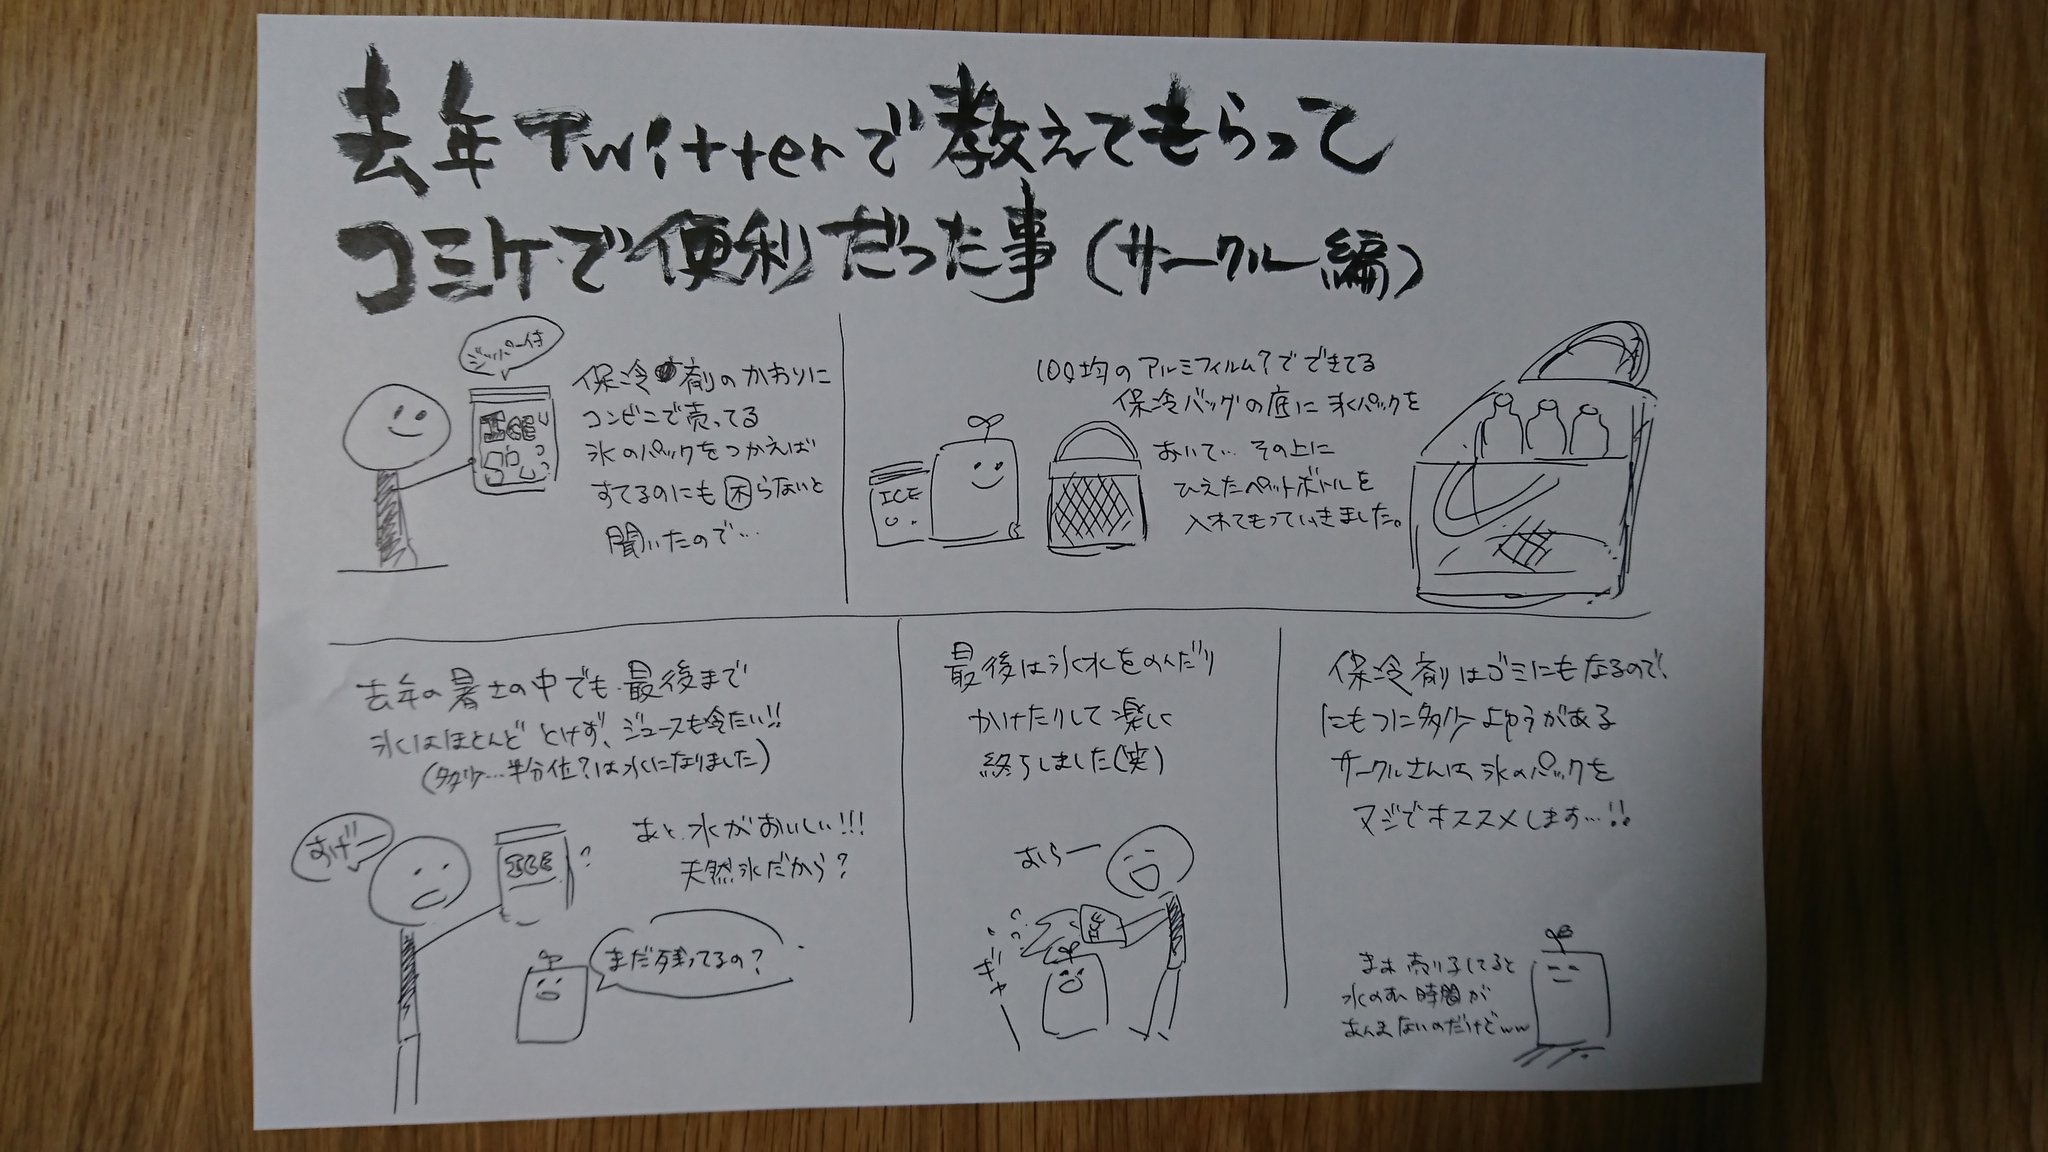 去年Twitterで教えてもらって
コミケで便利だった事(サークル編)
ジッパー付
ICE
保冷剤のかわりに
コンビニで売ってる
氷のパックをつかえば
すてるのにも困らないと
聞いたので…
100均のアルミフィルム?でできてる
保冷バッグの底に氷パックを
おいて…その上に
ひえたペットボトルを
入れてもっていきました。
ICE
去年の暑さの中でも最後まで
氷はほとんどとけず、ジュースも冷たい!!
(多少…半分位?は水になりました)
あと氷がおいしい!!!
天然氷だから?
すげー
ICE
?
まだ残ってるの?
最後は氷水をのんだり
かけたりして楽しく
終了しました(笑)
おらー
ギャー
保冷剤はゴミにもなるので、
にもつに多少よゆうがある
サークルさんは、氷のパックを
マジでオススメします…!!
まぁ売り子してると
水のむ時間が
あんまないのだけどww